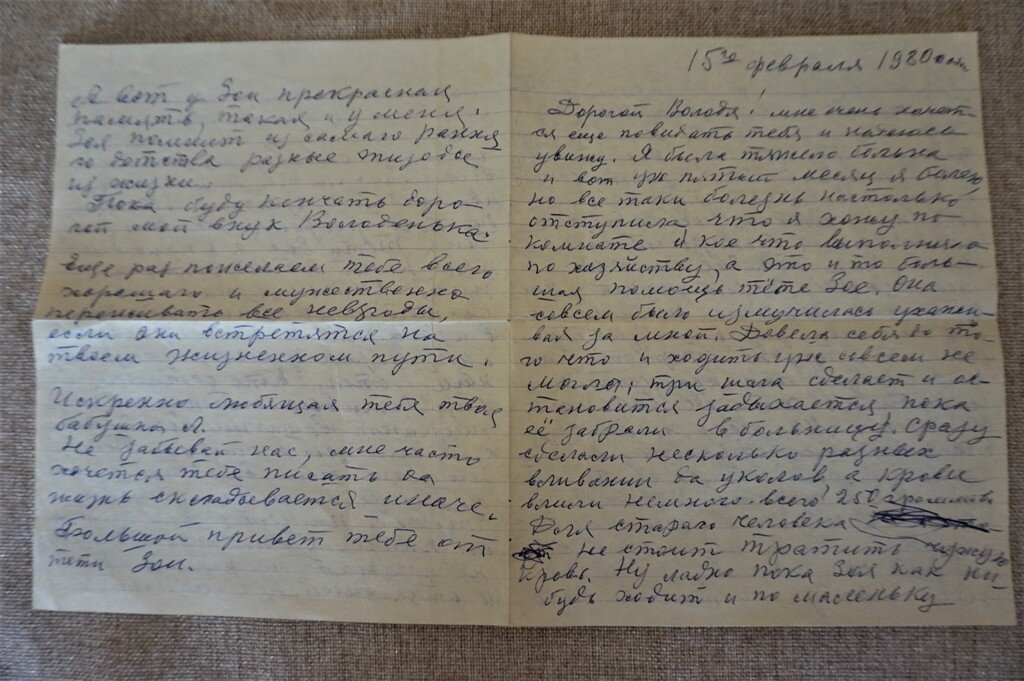 15го февраля 1980 года
Дорогой Володя! мне очень хочет-
ся еще повидать тебя и надеюсь
увижу. Я была тяжело больна
и вот уж пятый месяц я болею
но все таки болезнь настолько
отступила что я хожу по
комнате и кое что выполняю
по хозяйству, а это и то боль-
шая помощь тёте Зое. Она
совсем было измучилась ухажи-
вая за мной. Довела себя до то-
го что и ходить уже совсем не
могла, три шага сделает и ос-
тановится задыхается, пока
её забрали в больницу. Сразу
сделали несколько разных
вливании да уколов а крови
влили немного всего 250 граммов
Для стараго человека
не стоит тратить чужую
кровь. Ну ладно пока Зоя как ни
будь ходит и по маленьку
А вот у Зои прекрасная
память, такая и у меня.
Зоя помнит из самаго рання
го детства разные эпизоды
из жизни.
Пока буду кончать доро-
гой мой внук Володенька.
Еще раз пожелаем тебе всего
хорошаго и мужественно
переживать все невзгоды,
если они встретятся на
твоем жизненном пути.
Искренно любящая тебя твоя
бабушка Л.
Не забывай нас, мне часто
хочется тебе писать да
жизнь складывается иначе.
Большой привет тебе от
тети Зои.